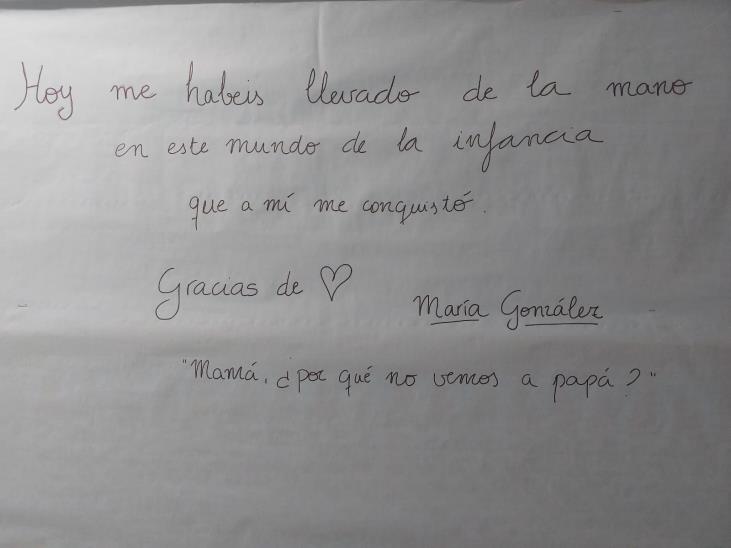 Hoy me habeis llevado de la mano
en este mundo de la infancia
que a mí me conquistó.
Gracias de ♡
María González
"Mamá, ¿por qué no vemos a papá?"